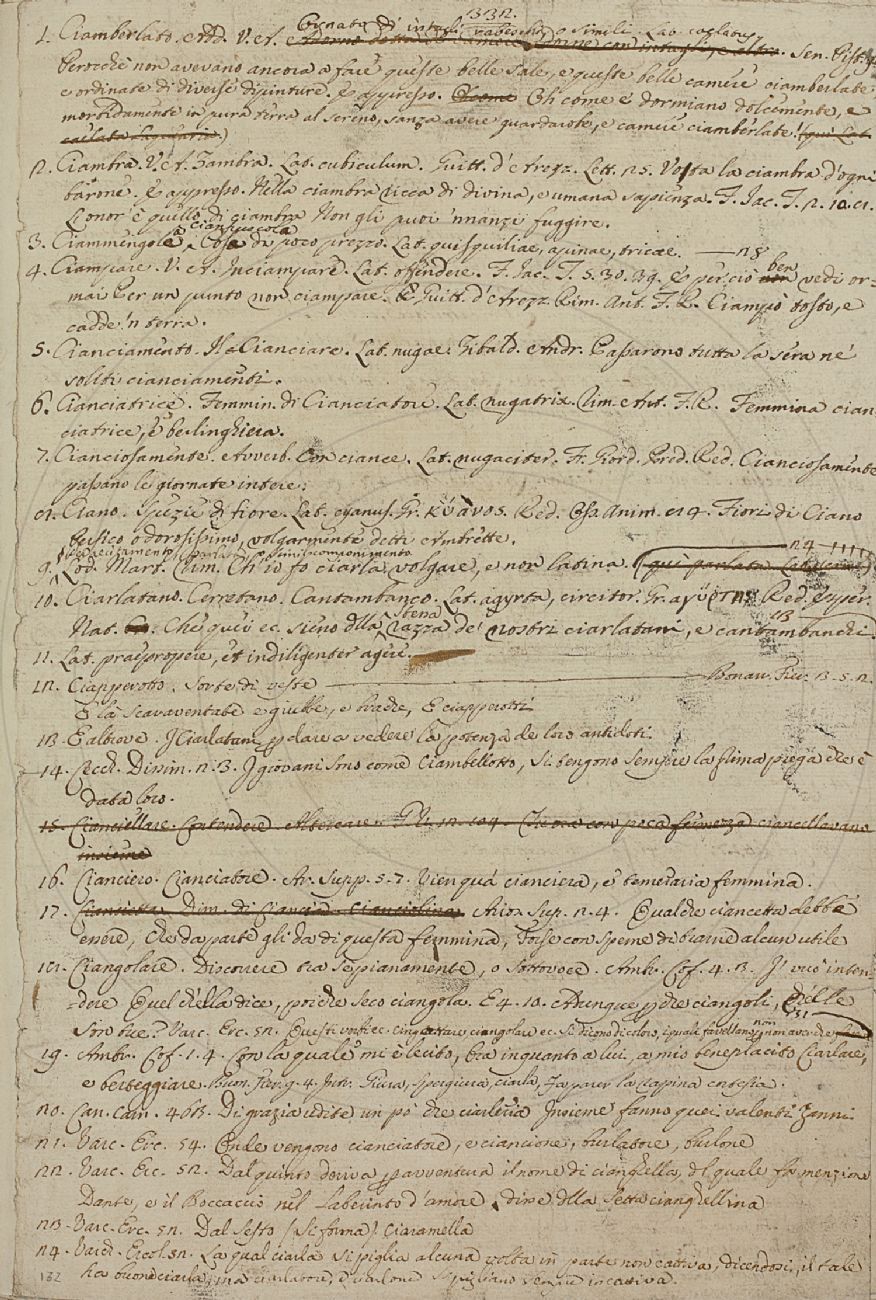 332.
Ornato di intagli, rabeschi, o simili. Lat. caelatus
1. Ciamberlato. Add. V. A. Adorno con intagli, e altro. Sen. Pist.
Perocchè non avevano ancora a fare queste belle sale, e queste belle camere ciamberlate,
e ordinate di diverse dipinture. E appresso. Oh come e' dormiano dolcemente, e
morbidamente in pura terra al sereno, sanza avere guardarobe, e camere ciamberlate. (qui Lat.
caelata
2. Ciambra. V. A. Zambra. Lat. cubiculum. Guitt. d'Arezz. Lett. 25. Vosta la ciambra d'ogni
barone. E appresso. Nella ciambra ricca di divina, e umana sapienza. F. Jac. T. 2. 10. 21.
L'onor è quello di ciambra Non gli puoi 'nnanzi fuggire.
a cianfruscola
3. Ciammengola, Cosa di poco prezzo. Lat. quisquiliae, apinae, tricae. — 28
4. Ciampare. V. A. Inciampare. Lat. offendere. F. Jac. T. 5. 30. 39. E perciò non ben vedi or-
mai Per un punto non ciampare. E Guitt. d'Arezz. Rim. Ant. F. R. Ciampò tosto, e
cadde 'n terra.
5. Cianciamento. Il Cianciare. Lat. nugae. Tibald. Andr. Passarono tutta la sera ne'
soliti cianciamenti.
6. Cianciatrice. Femmin. di Cianciatore. Lat. nugatrix. Rim. Ant. F. R. Femmina cian-
ciatrice, e berlinghiera.
7. Cianciosamente. Avverb. Con ciance. Lat. nugaciter. Fr. Giord. Pred. Red. Cianciosamente
passano le giornate intere.
8. Ciano. Spezie di fiore. Lat. cyanus. Gr. κύανος. Red. Oss. Anim. 84. Fiori di Ciano
Persico odorosissimo, volgarmente detti Ambrette.
24
9. Lod. Mart. Rim. Ch'io fo ciarla volgare, e non latina. (qui parlata
10. Ciarlatano. Cerretano. Cantambanco. Lat. agyrta, circitor. Gr. ἀγύρτης Red. Esper.
Nat. Che quivi ec. sieno della stessa razza de' nostri ciarlatani, e cantambanchi.
13
11. Lat. praepropere, et indiligenter agere.
12. Ciapperotto. Sorte di veste — Bonar. Fier. 3. 5. 2.
O la scaraventate e giubbe, e brache, E ciapperotti
13. E altrove. I Ciarlatani p dare a vedere la potenza de loro antidoti.
14. Cecch. Dissim. 2. 3. I giovani sono come Ciambellotto, si tengono sempre la prima piega che è
data loro.
15. Cianciellare. Contendere Altercare. G. V. 12. 104. Che ora con poca fermezza ciancellavano
insieme
16. Cianciero. Cianciatore. Ar. Supp. 5. 7. Vien quà cianciera, e temeraria femmina.
17. Ciancietta. Dim. di Ciancia. Cianciolina. Arios. Sup. 2. 4. Qualche ciancetta debbe
essere, che da parte gli dà di questa femmina, Forse con speme di trarne alcun utile
18. Ciangolare. Discorrere tra se pianamente, o sottovoce. Ambr. Cof. 4. 3. I' vuò inten-
dere Quel ch'ella dice, poichè seco ciangola. E 4. 10. Adunque pchè ciangoli, Chelle
51
son tue? Varc. Erc. 52. Questi verbi ec. cinguettare, ciangolare ec. si dicono di coloro, i quali favellano, non
19. Ambr. Cof. 1. 4. Con la quale mi è lecito, tra in quanto a lui, a mio beneplacito Ciarlare,
e berteggiare. Buon. Fier. g. 4. Intr. Giura, spergiura, ciarla,
20. Can. Carn. 463. Di grazia udite un po' che ciarleria Insieme fanno quei valenti Zanni
21. Varc. Erc. 54. Onde vengono cianciatore, e ciancione, burlatore, burlone
22. Varc. Erc. 52. Dal quinto deriva p avventura il nome di cianghella, del quale fa menzione
Dante, e il Boccaccio nel Laberinto d'amore, dove della Setta cianghellina
23. Varc. Erc. 52. Dal sesto (si forma) Ciaramella
24. Varch. Ercol. 52. La qual ciarla si piglia alcuna volta in parte non cattiva, dicendosi, il tale
ha buona ciarla, ma ciarlatore, e ciarlone si pigliano sempre in cattiva.
132